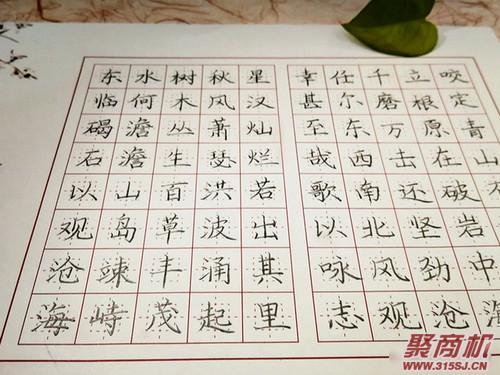 东临碣石以观沧海
水何澹澹山岛竦峙
树木丛生百草丰茂
秋风萧瑟洪波涌起
星汉灿烂若出其里
幸甚至哉歌以咏志
观沧
咬定青山
立根原在破岩中
千磨万击还坚劲
任尔东西南北风
聚商机
WWW.315SJ.CN